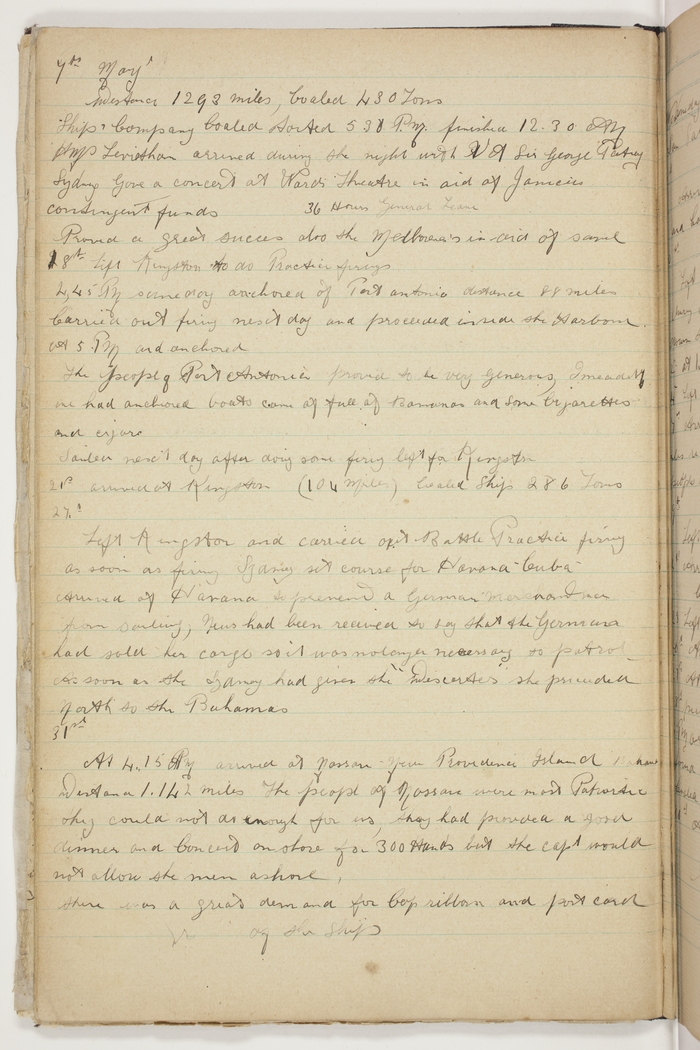 7th May
Distance 1293 miles, Coaled 430 Tons
Ships Company Coaled started 5 30 P.M. finished 12.30 AM
HMS Leviathan arrived during the night with V A Sir George Patey
Sydney Gave a concert at Wards Theatre in aid of Jamaica
contingent funds 36 Hours General Leave
Proved a great succes also the Melbourne's in aid of same
18th Left Kingston to do Practice firings
4,45 PM same day anchored of Port antonio distance 88 miles
Carried out firing nesct day and proceeded inside the Harbour
at 5 PM and anchored
The people of Port Antonio proved to be very Generous,
we had anchored boats came of full of Bananas and some Cigarettes
and cigars
Sailed nesct day after doing some firing left for Kingston
21st arrived at Kingston (104 Miles) Coaled Ship 286 Tons
27th
Left Kingston and carried out Battle Practice firing
as soon as firing Sydney set course for Havana Cuba
arrived of Havana to prevent a German
from sailing, News had been received to say that the Germans
had sold her cargo so it was no longer necessary to patrol
As soon as the Sydney had given the she proceeded
North to the Bahamas
31st
At 4.15 PM arrived at Nassau New Providence Island
Distance 1.142 miles The people of Nassau were most Patriotic
they could not do enough for us, they had provided a good
dinner and Concert onshore for 300 Hands but the capt would
not allow the men ashore,
there was a great demand for Cap ribbon and post card
of the Ship